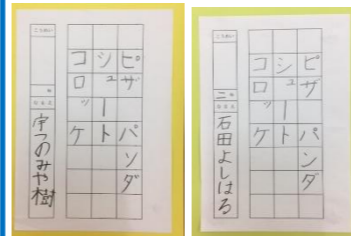 ピザ パソダ
シュート
コロッケ
なまえ
宇つのみや樹
ピザ パンダ
シュート
コロッケ
なまえ
石田よしはる